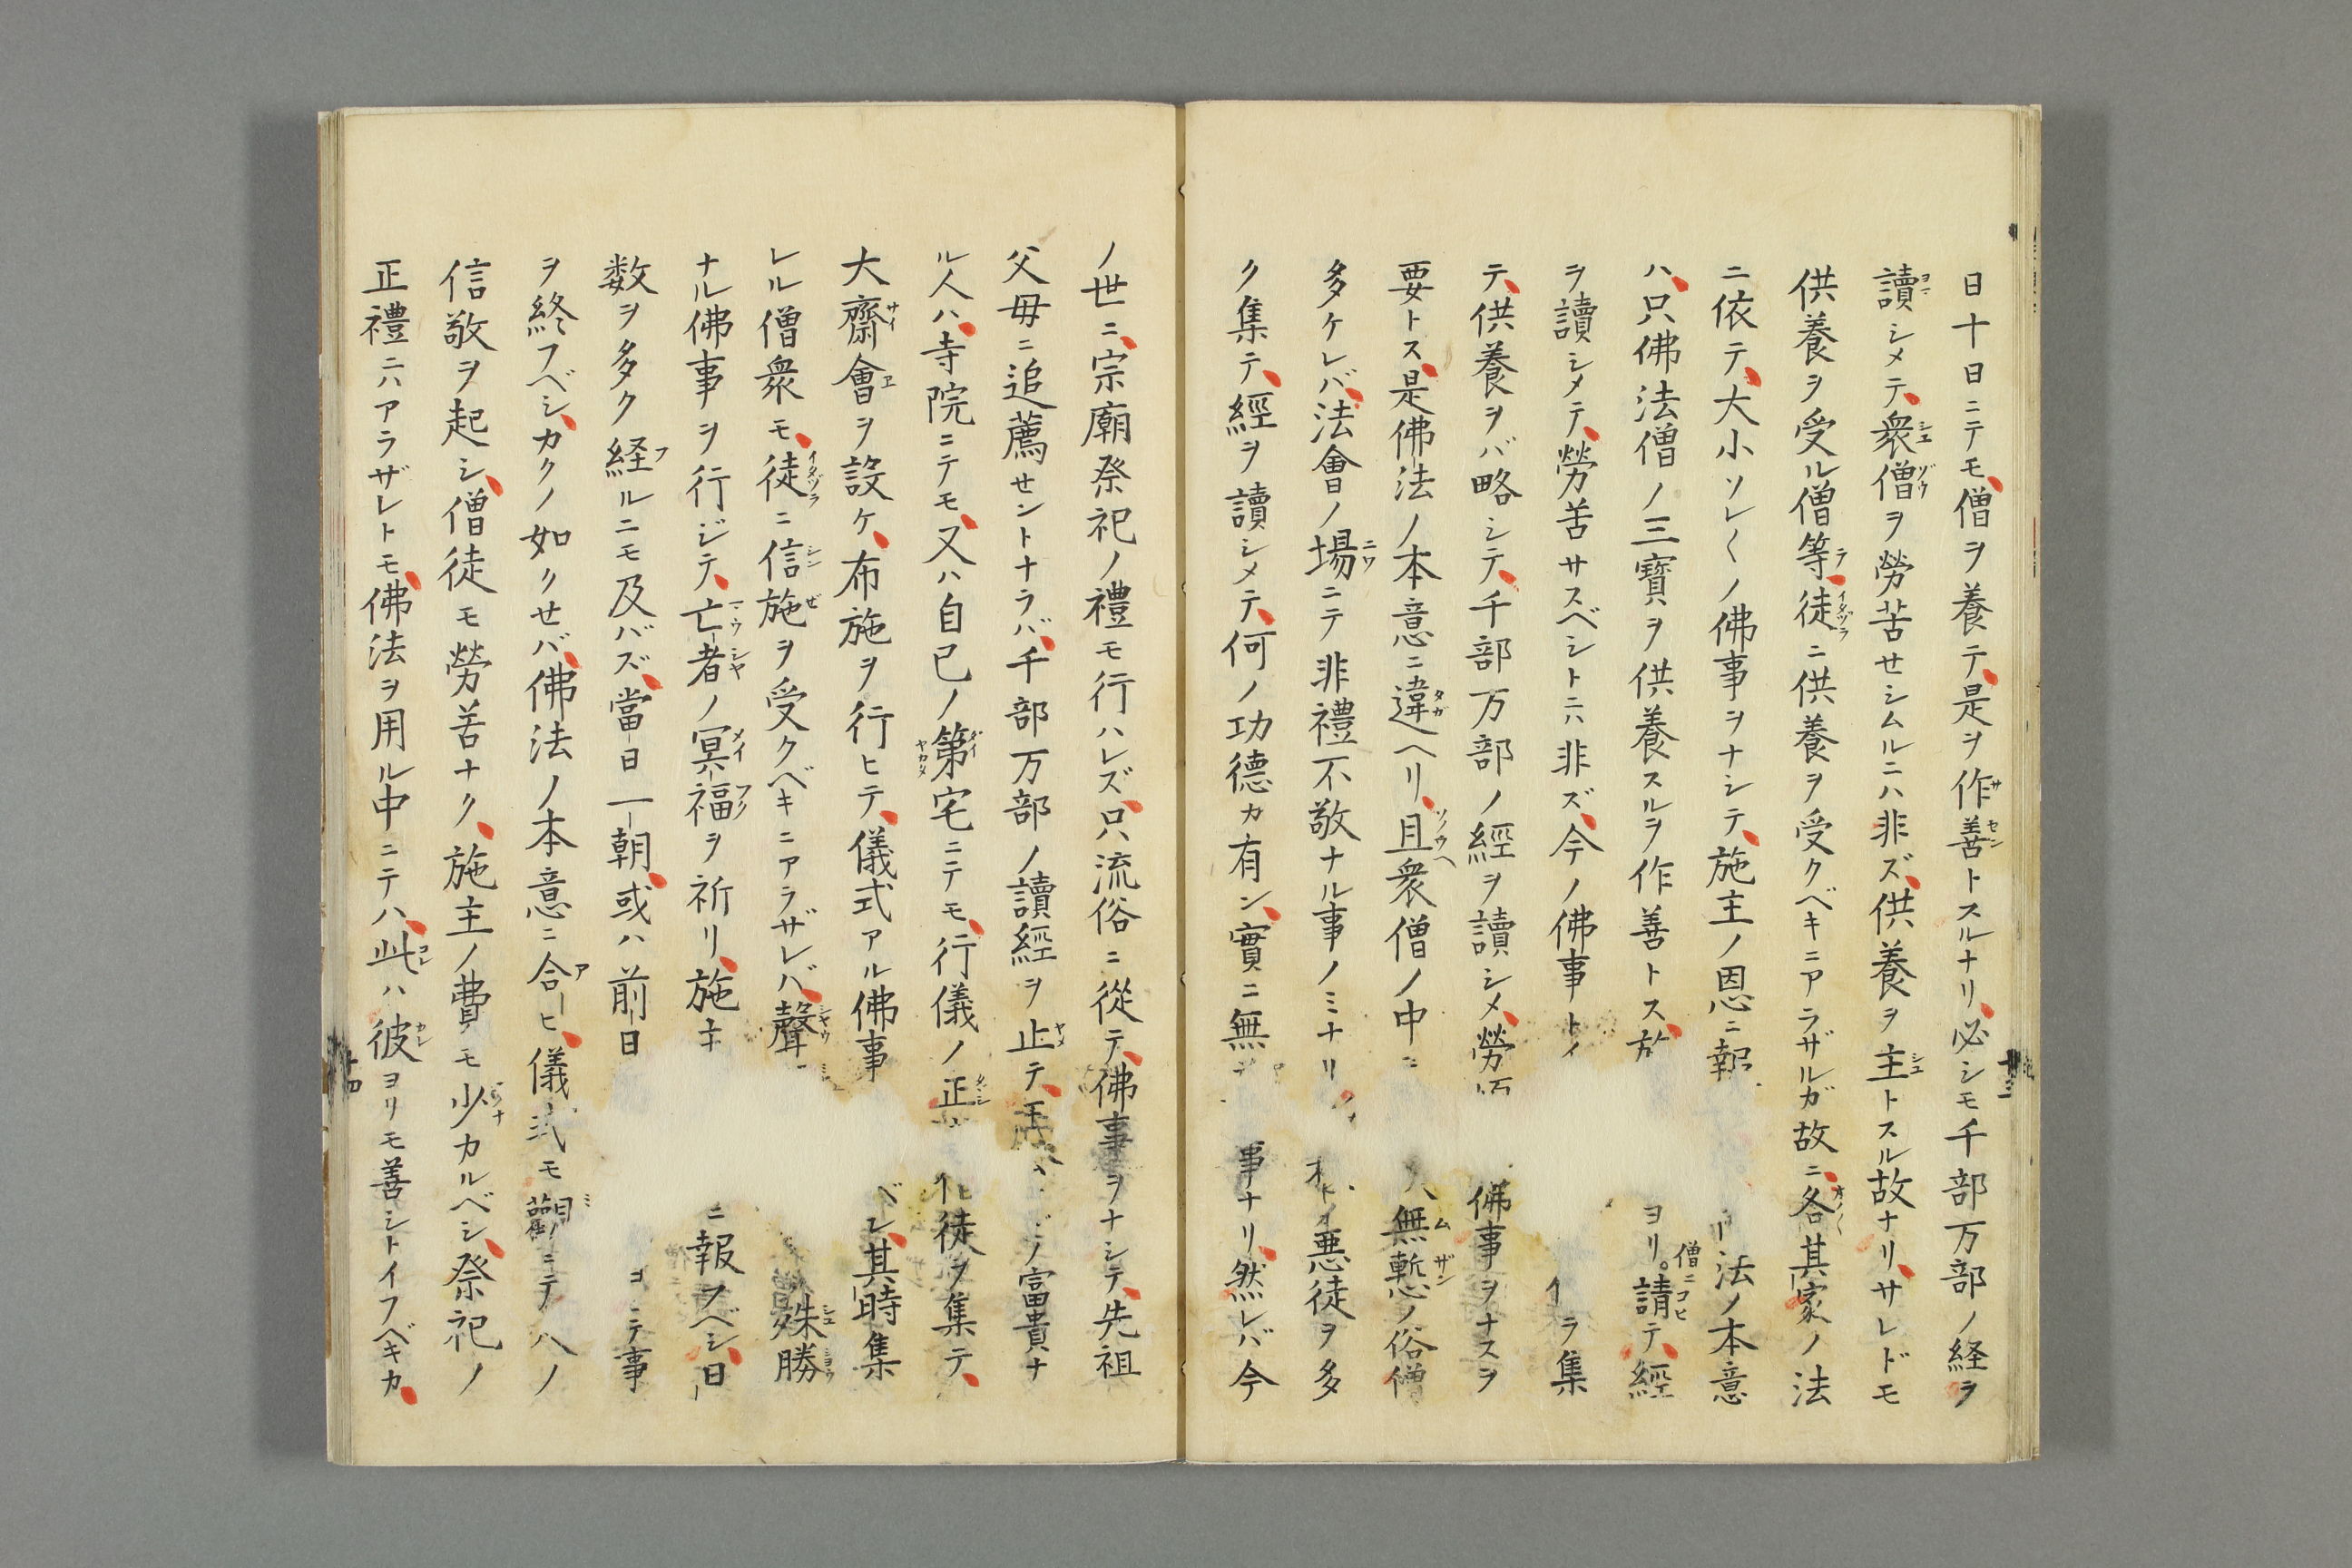 日十日ニテモ、僧ヲ養テ、是ヲ作善トスルナリ、必シモ千部万部ノ経ヲ
讀シメテ、衆僧ヲ勞苦セシムルニハ非ズ、供養ヲ主トスル故ナリ、サレドモ
供養ヲ受ル僧等、徒ニ供養ヲ受クベキニアラザルガ故ニ、各其家ノ法
ニ依テ、大小ソレ〱ノ佛事ヲナシテ、施主ノ恩ニ報 法ノ本意
ハ、只佛法僧ノ三寳ヲ供養スルヲ作善トス、故 ヨリ。僧ニコヒ請テ、經
ヲ讀シメテ、勞苦サスベシトニハ非ズ、今ノ佛事ト ラ集
テ、供養ヲバ略シテ、千部万部ノ經ヲ讀シメ、勞 佛事ヲナスヲ
要トス、是佛法ノ本意ニ違ヘリ、且衆僧ノ中ニ 無慙ノ俗僧
多ケレバ、法會ノ場ニテ非禮不敬ナル事ノミナリ 悪徒ヲ多
ク集テ、經ヲ讀シメテ、何ノ功德カ有ン、實ニ無 事ナリ、然レバ今
ノ世ニ、宗廟祭祀ノ禮モ行ハレズ、只流俗ニ從テ、佛事ヲナシテ、先祖
父母ニ追薦セントナラバ、千部万部ノ讀經ヲ止テ、 ノ富貴ナ
ル人ハ、寺院ニテモ、又ハ自己ノ第宅ニテモ、行儀ノ正 徒ヲ集テ、
大齋會ヲ設ケ、布施ヲ行ヒテ、儀式アル佛事 ベシ、其時集
レル僧衆モ、徒ニ信施ヲ受クベキニアラザレバ、聲 殊勝
ナル佛事ヲ行ジテ、亡者ノ冥福ヲ祈リ、施主 ニ報ヲベシ、日
数ヲ多ク経ルニモ及バズ、當日一朝、或ハ前日 ニテ事
ヲ終フベシ、カクノ如クセバ、佛法ノ本意ニ合ヒ、儀式モ觀ニテ ハノ
信敬ヲ起シ、僧徒モ勞苦ナク、施主ノ費モ少カルベシ、祭祀ノ
正禮ニハアラザレトモ、佛法ヲ用ル中ニテハ、此ハ彼ヨリモ善シトイフベキカ、